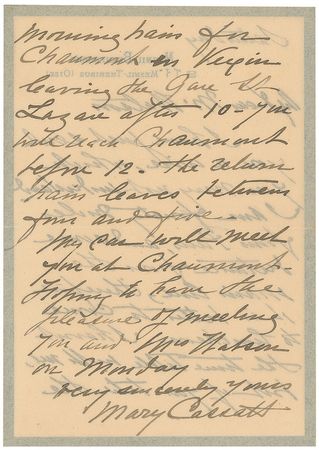 Morning train for
Chaumont en Vexin
leaving the Gare St
Lazare after 10 - you
will reach Chaumont
before 12. The return
train leaves between
four and five -
My car will meet
you at Chaumont -
Hoping to have the
pleasure of meeting
you and Mrs Watson
on Monday
very sincerely yours
Mary Cassatt